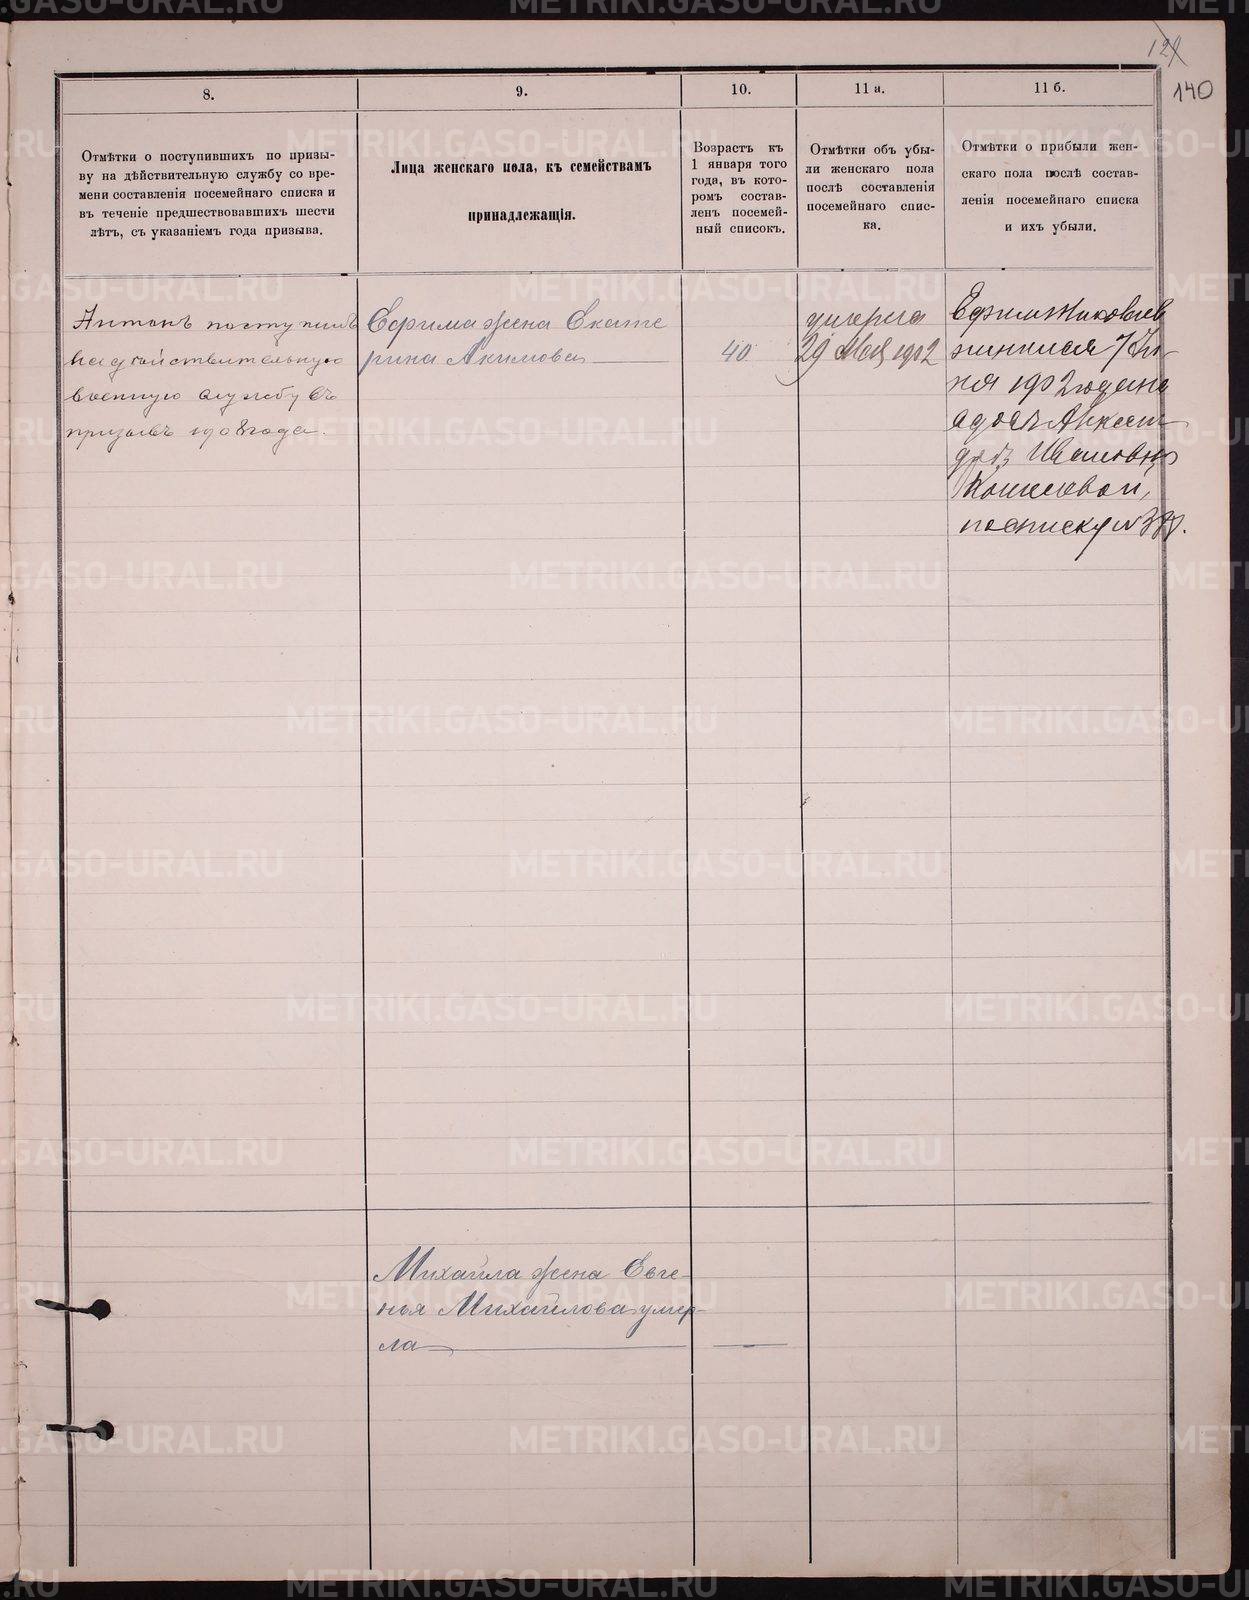 140
8.
9.
10.
11 а.
11 б.
Отмѣтки о поступившихъ по призы-
ву на дѣйствительную службу со вре-
мени составленія посемейнаго списка и
въ теченіе предшествовавшихъ шести
лѣтъ, съ указаніемъ года призыва.
Лица женскаго пола, къ семействамъ
принадлежащія.
Возрастъ къ
1 января того
года, въ кото-
ромъ состав-
ленъ посемей-
ный списокъ.
Отмѣтки объ убы-
ли женскаго пола
послѣ составленія
посемейнаго спис-
ка.
Отмѣтки о прибыли жен-
скаго пола послѣ состав-
ленія посемейнаго списка
и ихъ убыли.
Антонъ поступилъ
на дѣйствительную
военную службу въ
призывъ 1908 года.
Ефима жена Екате
рина Акимова
40
умерла
29 Мая 1902
Ефимъ
женился 7 Iю-
ня 1902 года на
вдовѣ Александрѣ
Ивановнѣ
по списку №
Михаила жена Евге-
нья Михайлова умер-
ла
METRIKI.GASO-URAL.RU